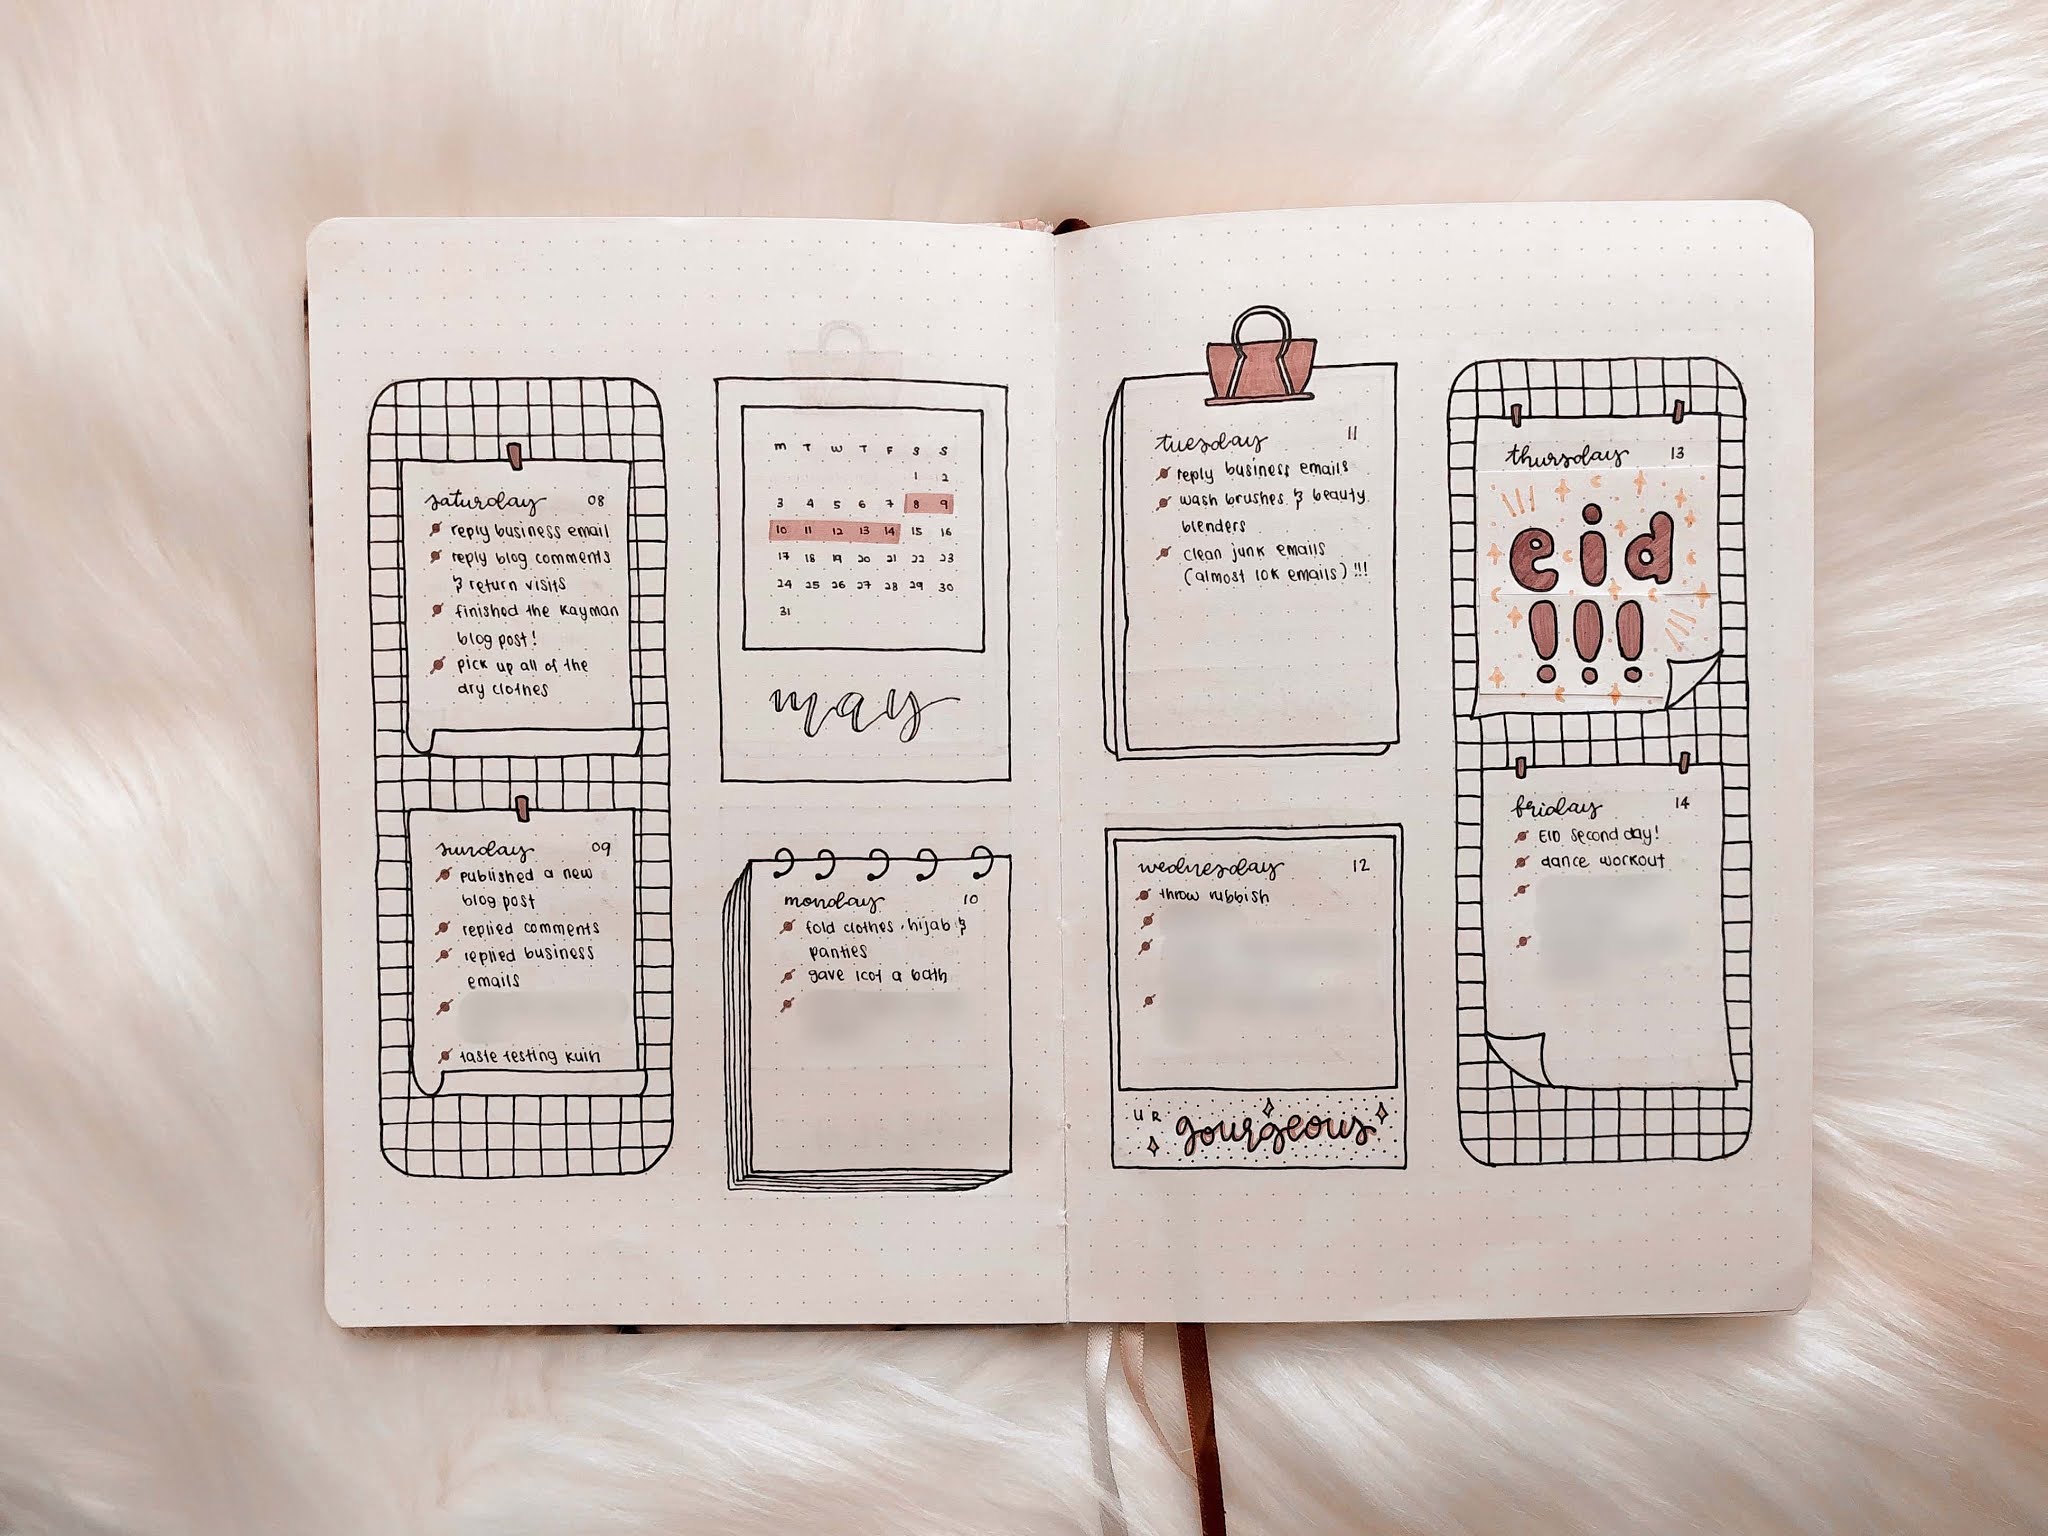 saturday 08
reply business email
reply blog comments
& return visits
finished the Kayman
blog post!
pick up all of the
dry clothes
sunday 09
published a new
blog post
replied comments
replied business
emails
taste testing kuih
M T W T F S S
1 2
3 4 5 6 7 8 9
10 11 12 13 14 15 16
17 18 19 20 21 22 23
24 25 26 27 28 29 30
31
may
monday 10
fold clothes, hijab &
panties
gave Icot a bath
tuesday 11
reply business emails
wash brushes & beauty
blenders
clean junk emails
(almost 10K emails) !!!
wednesday 12
throw rubbish
U R gourgeous
thursday 13
eid
!!!
friday 14
EID second day!
dance workout